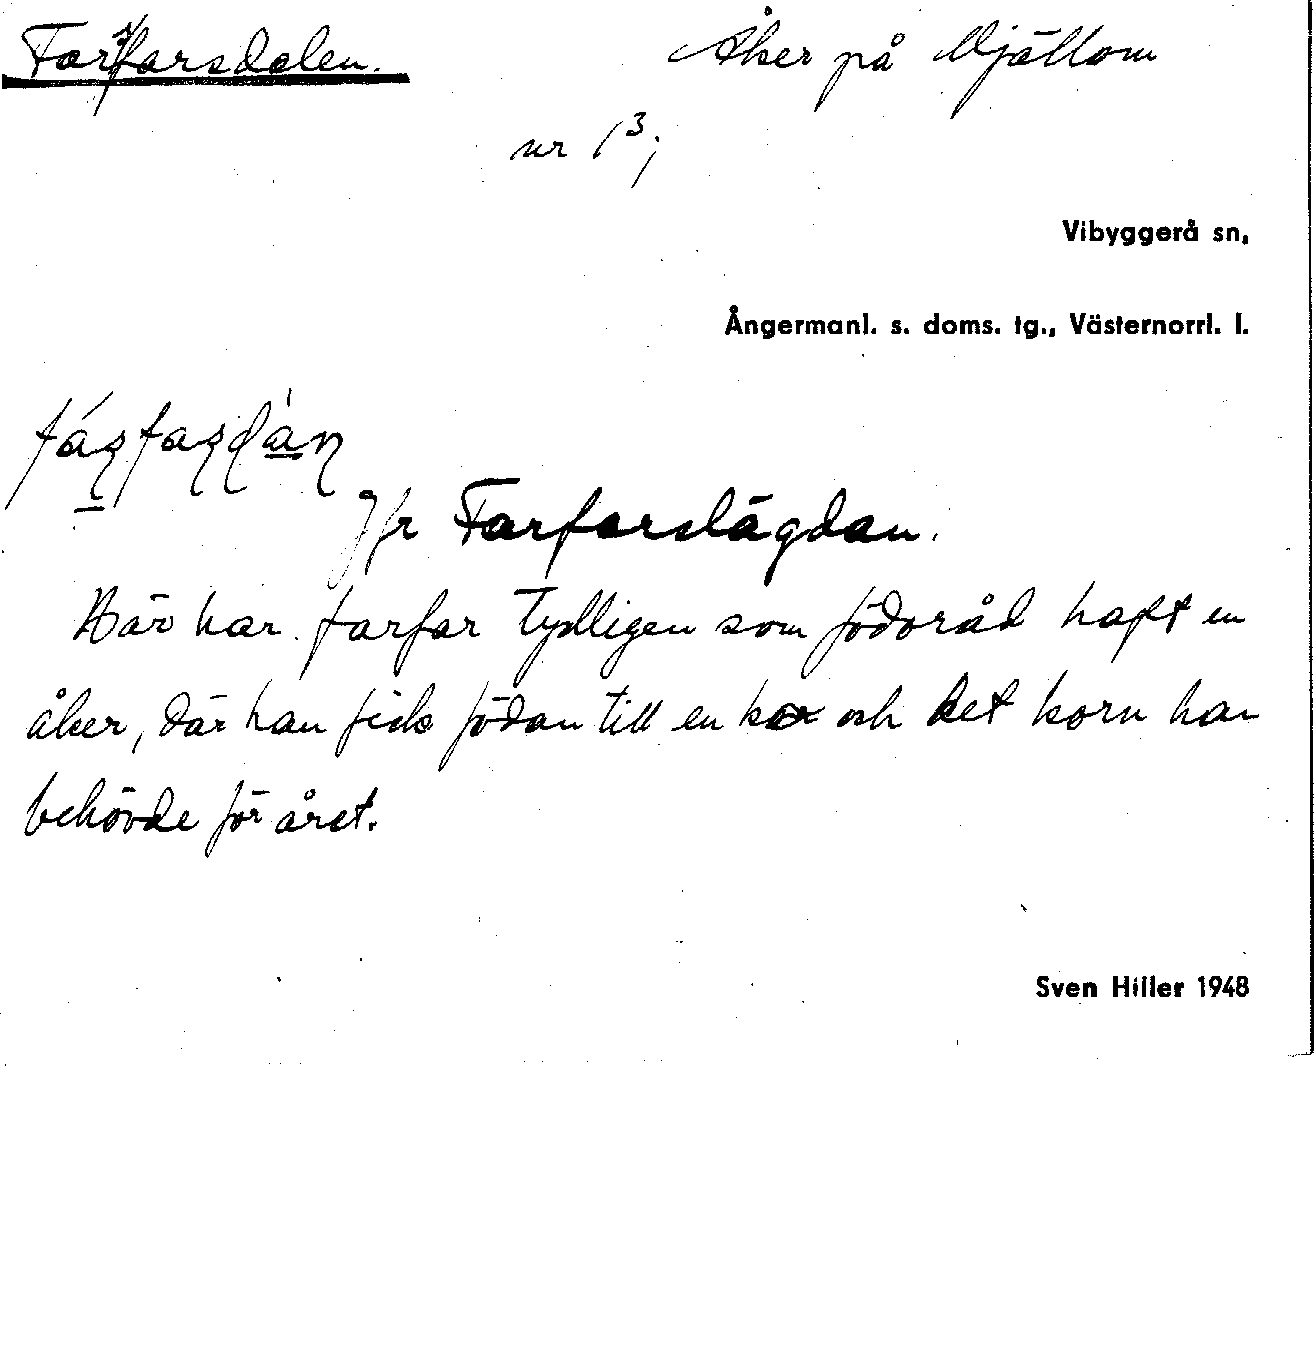 Farfarsdalen. Åker på Mjällom
nr 1³;
Vibyggerå sn,
Ångermanl. s. doms. tg., Västernorrl. l.
Jfr Farfarslägdan.
Här har farfar tydligen som födoråd haft en
åker, där han fick födan till en ko och det korn han
behövde för året.
Sven Hiller 1948